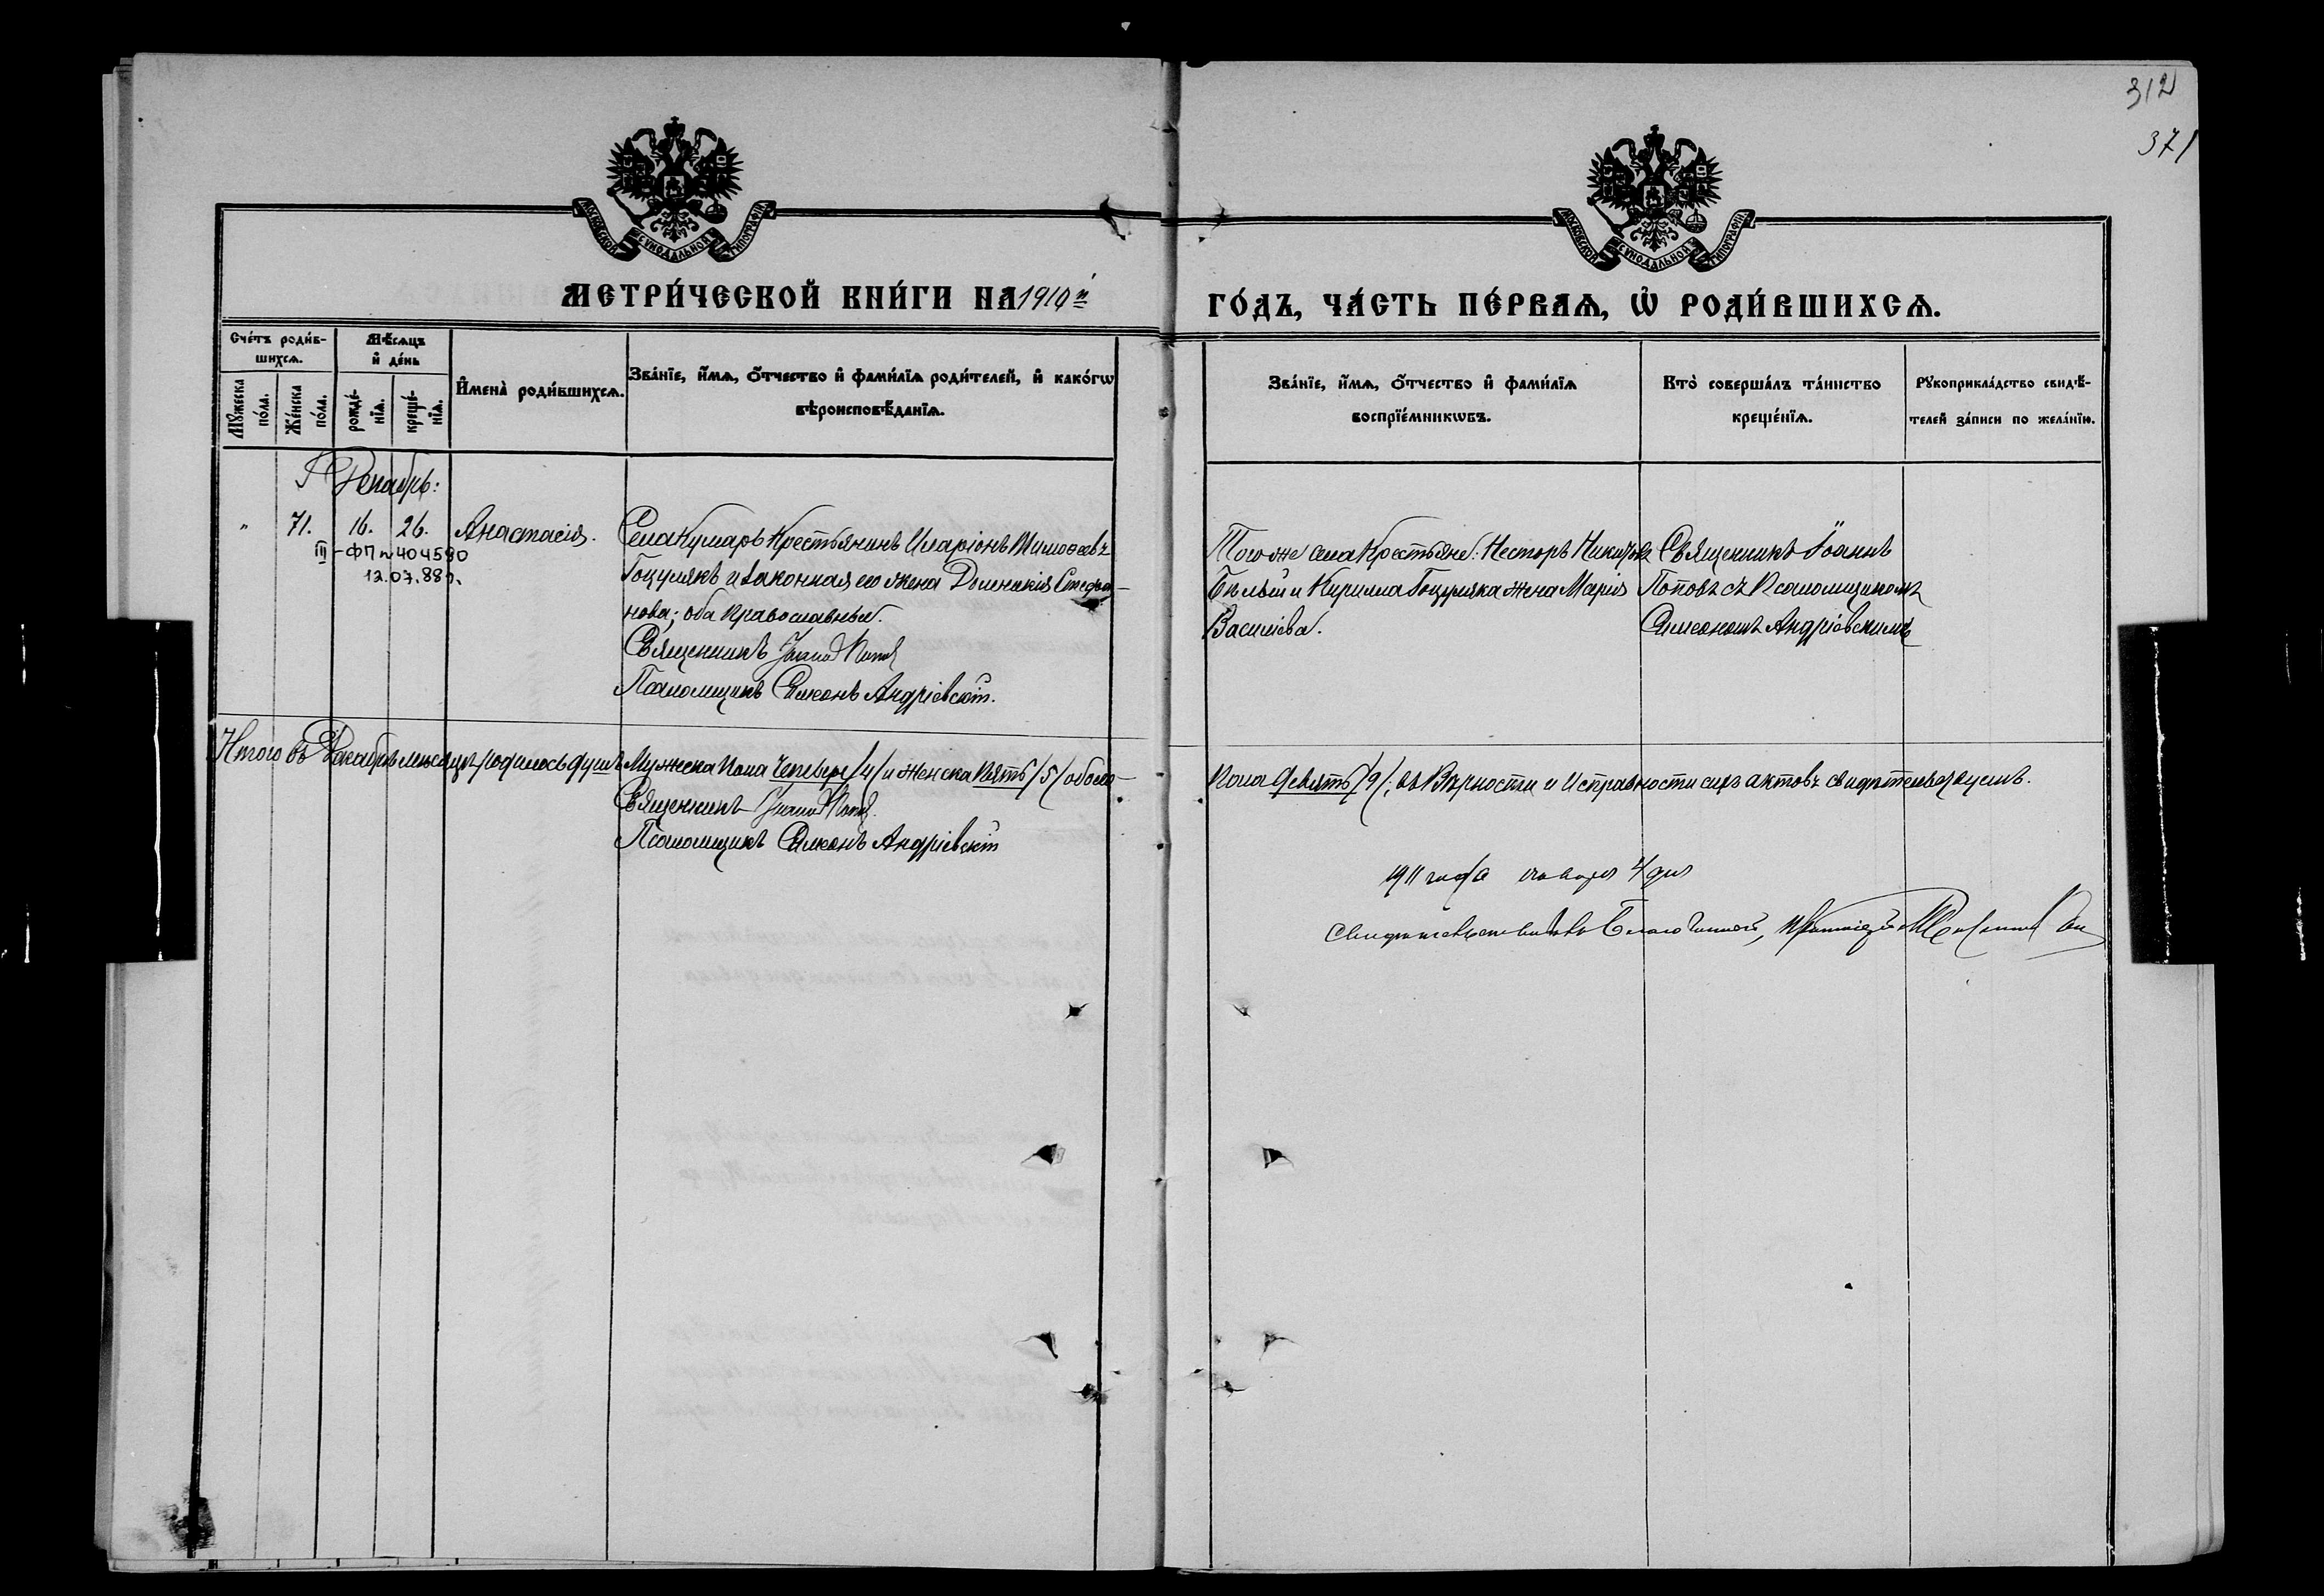 312
371
МОСКОВСКОЙ СѴНОДАЛЬНОЙ ТИПОГРАФІИ
МОСКОВСКОЙ СѴНОДАЛЬНОЙ ТИПОГРАФІИ
МЕТРИ́ЧЕСКОЙ КНИ́ГИ НА 1910й
ГО́ДЪ, ЧА́СТЬ ПЕ́РВАѦ, Ѡ҆ РОДИ́ВШИХСѦ.
Сче́тъ роди́в-
шихсѧ.
Мѣ́сѧцъ
и҆ де́нь
Мꙋжеска
по́ла.
Же́нска
по́ла.
рожде́-
нїѧ.
креще́-
нїѧ.
И҆мена̀ роди́вшихсѧ.
Зва́нїе, и҆́мѧ, о҆́тчество и҆ фами́лїѧ роди́телей, и҆ како́гѡ
вѣроисповѣ́данїѧ.
Зва́нїе, и҆́мѧ, о҆́тчество и҆ фами́лїѧ
воспрїе́мникѡвъ.
Кто̀ соверша́лъ та́инство
креще́нїѧ.
Рꙋкоприкла́дство свидѣ́-
телей за́писи по жела́нїю.
Декабрь:
" 71. 16. 26. Анастасія.
III-ФП № 404590
12.07.88г.
Села Кумаръ Крестьянинъ Иларіонъ Тимоѳеевъ
Гоцулякъ и законная его жена Домникія Стефа-
нова; оба православные.
Священникъ Іоаннъ Поповъ
Псаломщикъ Симеонъ Андріевскій.
Того же села Крестьяне: Несторъ Никифоровъ
Бѣлый и Кирилла Гоцуляка жена Марія
Василіева.
Священникъ Іоаннъ
Поповъ съ Псаломщикомъ
Симеономъ Андріевскимъ
Итого въ Декабрѣ мѣсяцѣ родилось душъ Мужеска пола Четыре /4/ и женска Пять /5/ обоего
пола Девять /9/; въ Вѣрности и Исправности сихъ актовъ свидѣтельствуемъ.
Священникъ Іоаннъ Поповъ.
Псаломщикъ Симеонъ Андріевскій
1911 года января 4 дня
Свидѣтельствовалъ Благочинный, Протоіерей